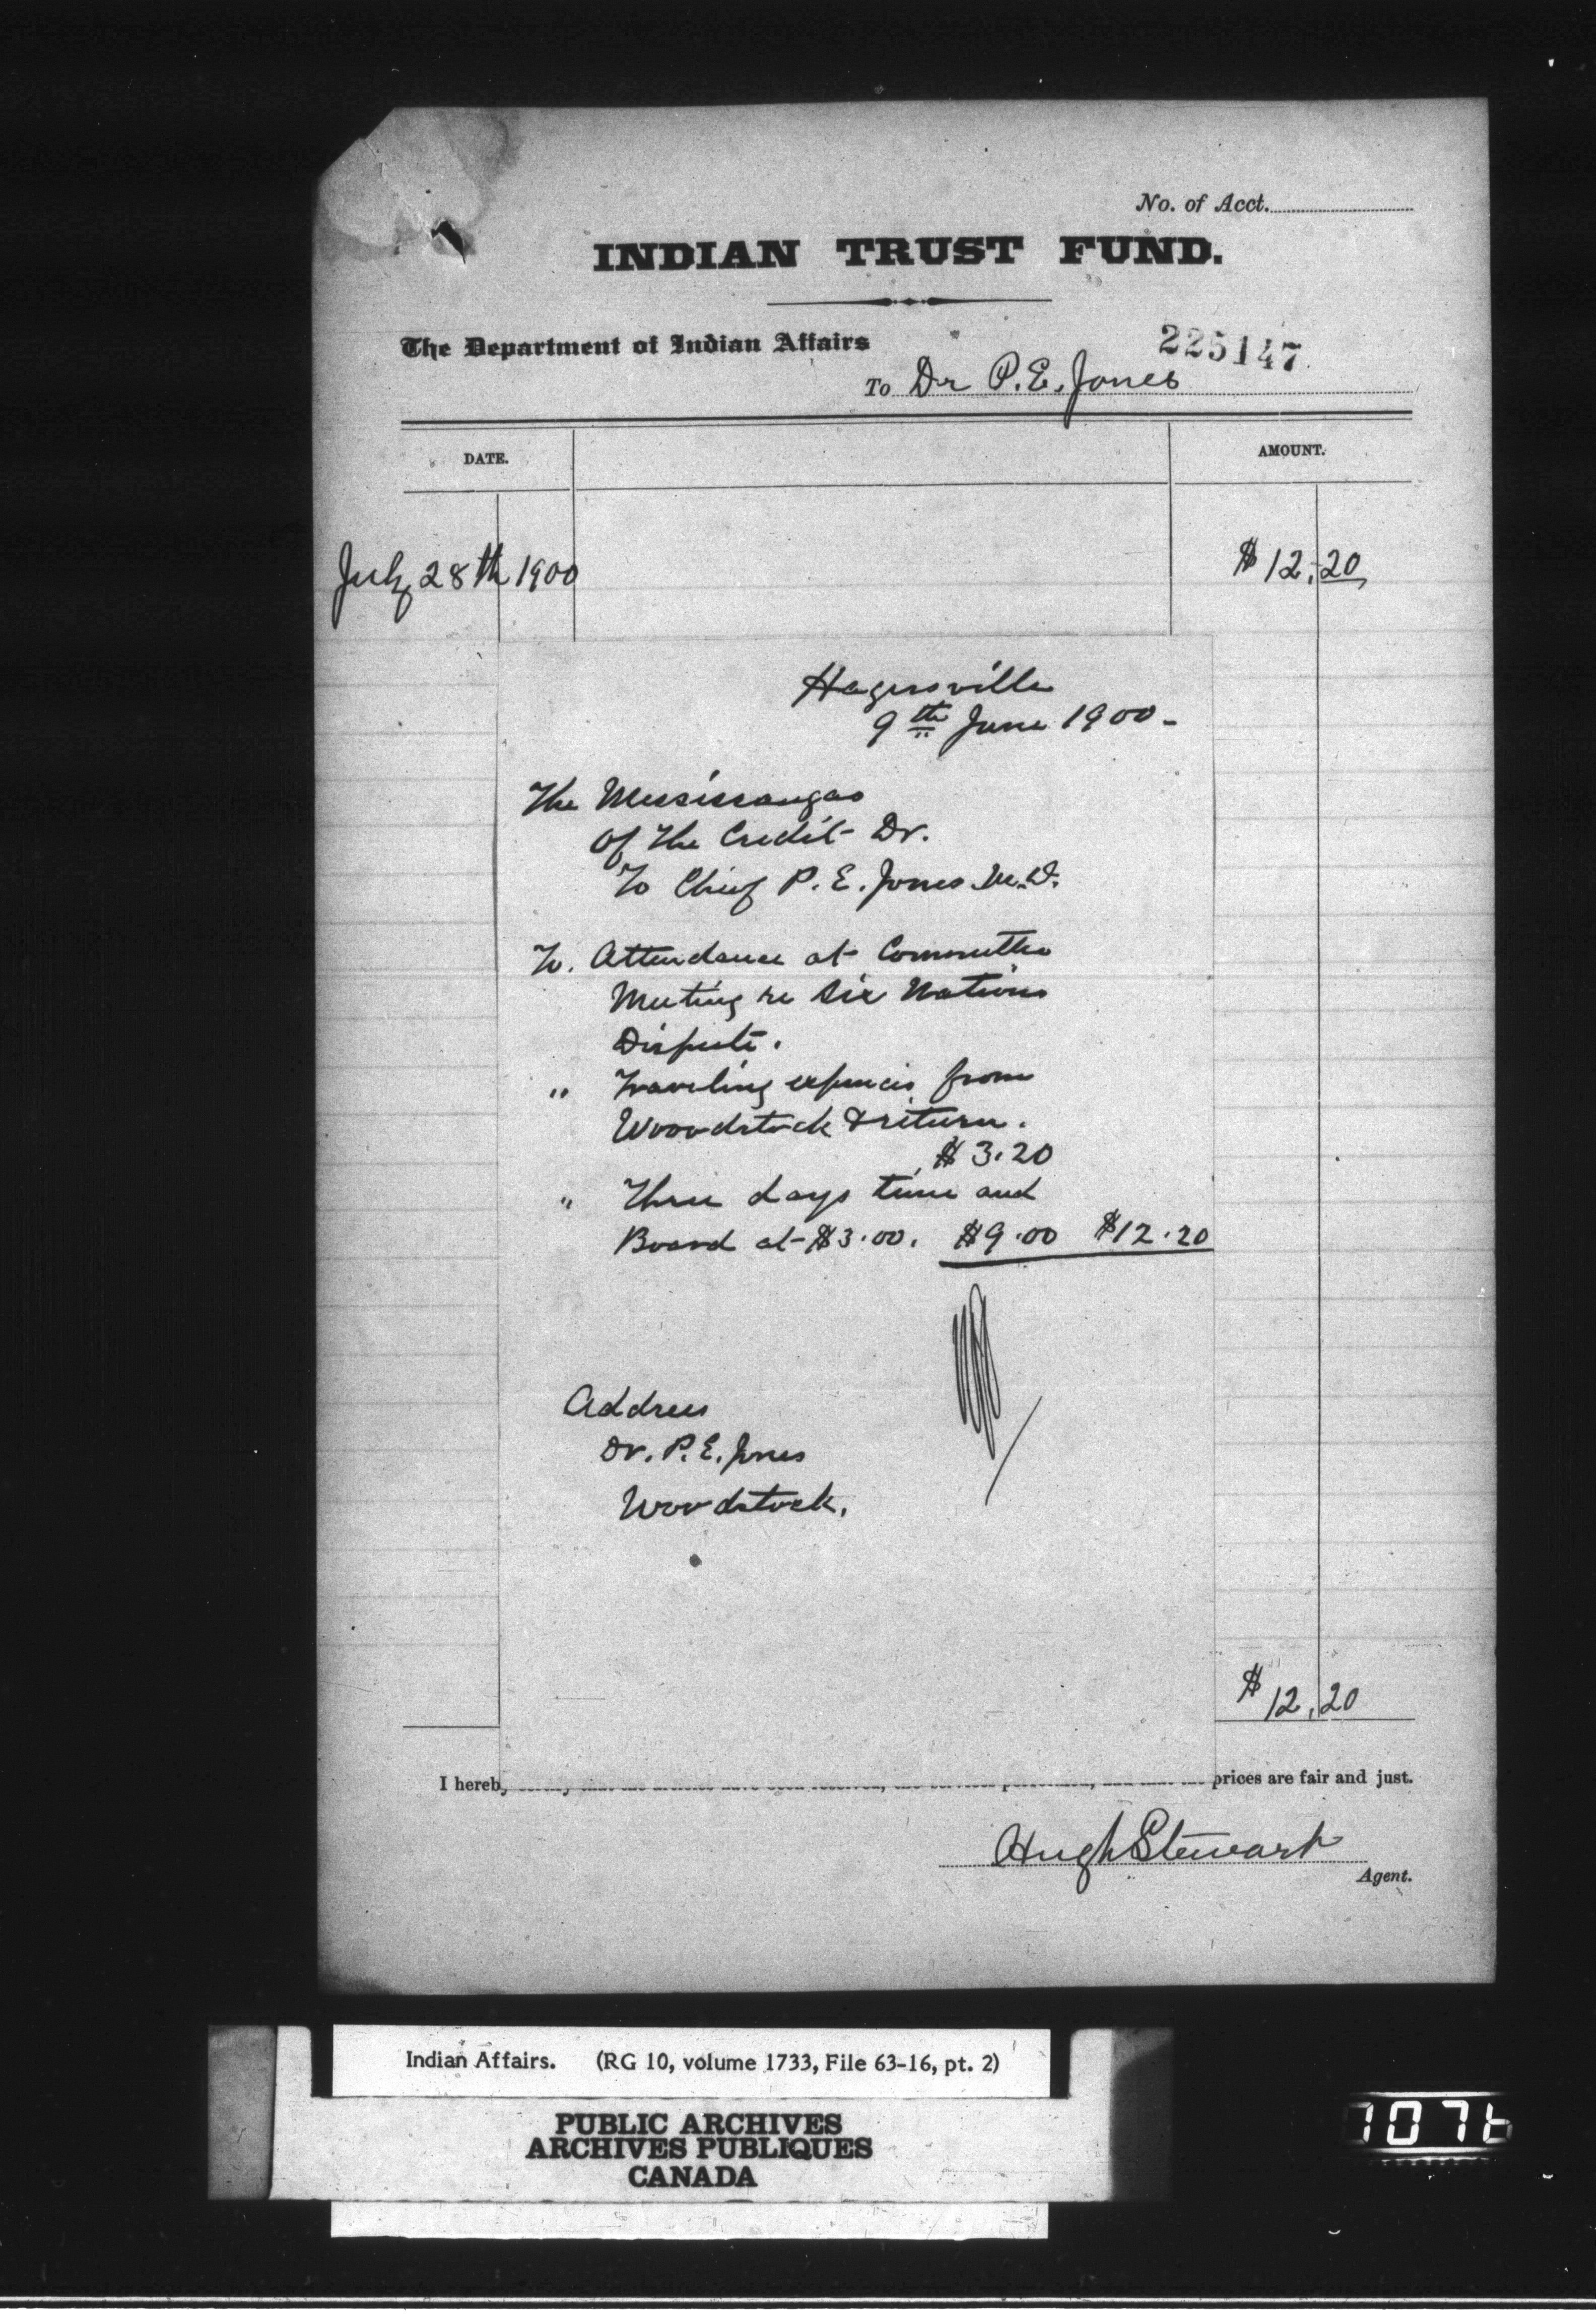 No. of Acct.
INDIAN TRUST FUND.
The Department of Indian Affairs
225147
To Dr P. E. Jones
DATE.
AMOUNT.
July 28th 1900
$12.20
Hagersville
9th June 1900-
The Mississaugas
of the Credit Dr.
To Chief P. E. Jones M.D.
To. Attendance at Committee
Meeting re Six Nations
Dispute.
" Traveling expences from
Woodstock & return.
$3.20
" Three days time and
Board at $3.00. $9.00 $12.20
Address
Dr. P. E. Jones
Woodstock.
$12.20
I hereb
prices are fair and just.
Hugh Stewart
Agent.
Indian Affairs. (RG 10, volume 1733, File 63-16, pt. 2)
PUBLIC ARCHIVES
ARCHIVES PUBLIQUES
CANADA